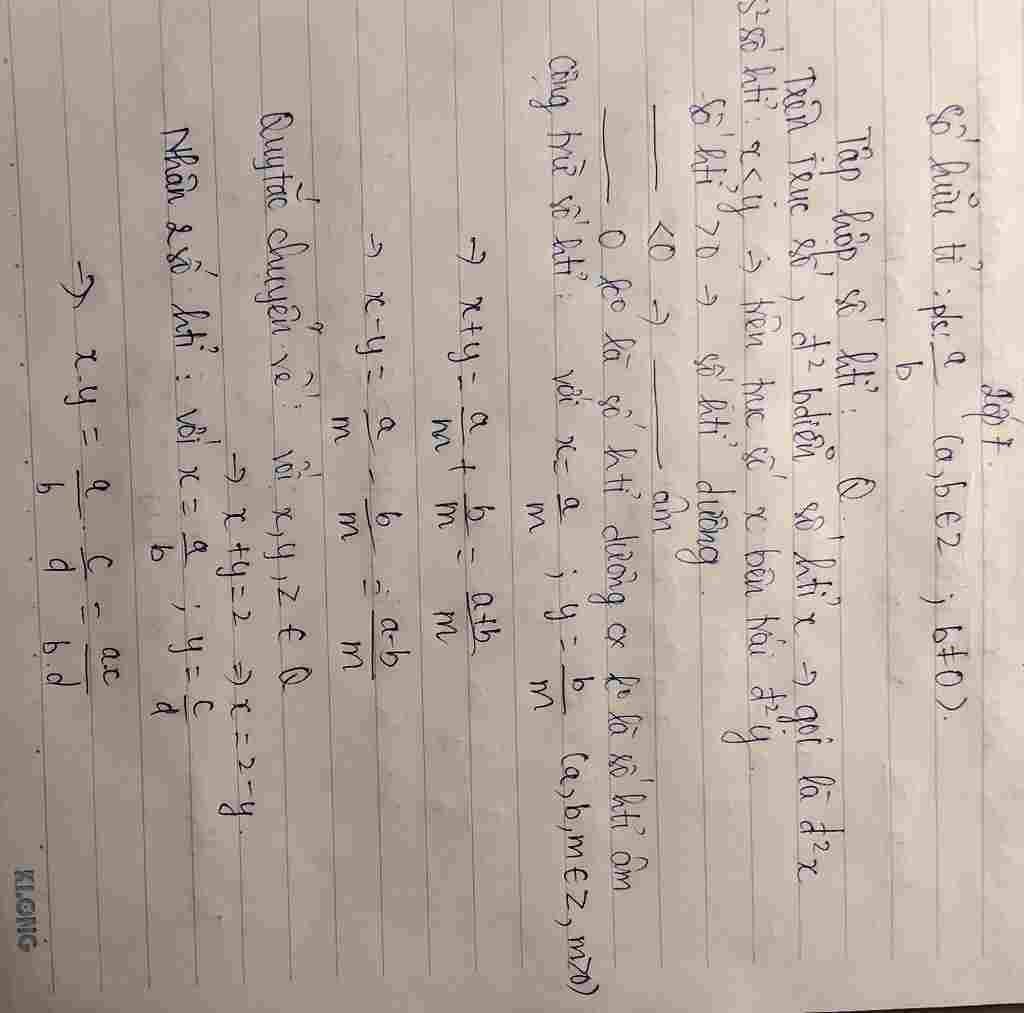 Lớp 7.
Số hữu tỉ : ps: a/b (a, b ∈ Z ; b ≠ 0).
Tập hợp số htỉ : Q
Trên trục số, đ² bdiễn số htỉ x → gọi là đ² x
S² số htỉ : x < y → trên trục số x bên trái đ² y.
số htỉ > 0 → số htỉ dương.
____ < 0 → ____ âm
____ 0 ko là số htỉ dương cx ko là số htỉ âm
Cộng trừ số htỉ : với x = a/m ; y = b/m (a, b, m ∈ Z, m > 0)
→ x + y = a/m + b/m = a+b/m
→ x - y = a/m - b/m = a-b/m
Quy tắc chuyển vế : với x, y, z ∈ Q
→ x + y = z → x = z - y.
Nhân 2 số htỉ : với x = a/b ; y = c/d
→ x.y = a/b . c/d = a.c/b.d
KLONG